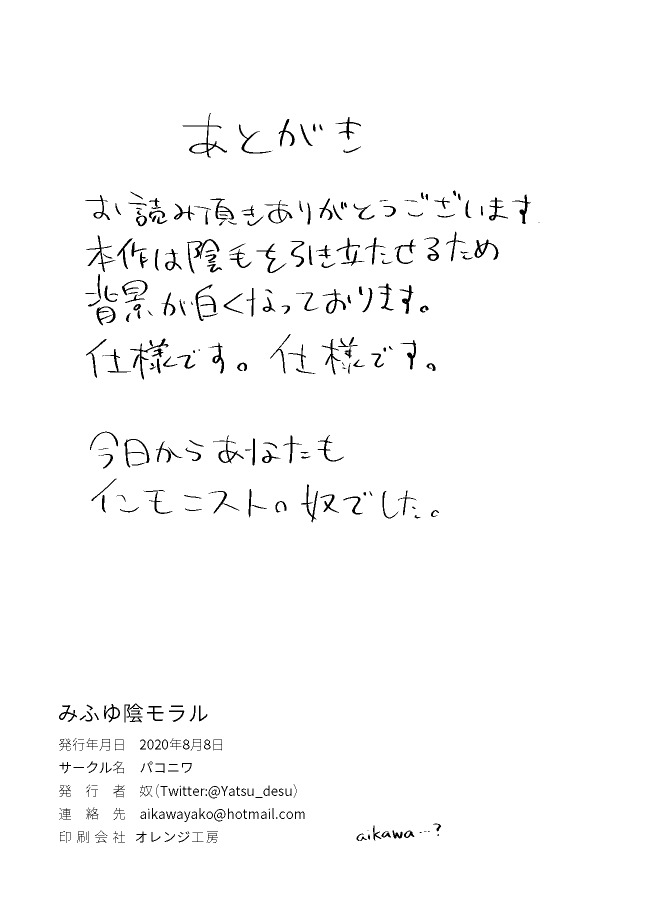 あとがき
お読み頂きありがとうございます
本作は陰毛を引き立たせるため
背景が白くなっております。
仕様です。仕様です。
今日からあなたも
インモニストの奴でした。
みふゆ陰モラル
発行年月日 2020年8月8日
サークル名 パコニワ
発行者 奴(Twitter:@Yatsu_desu)
連絡先 aikawayako@hotmail.com
印刷会社 オレンジ工房
aikawa…?